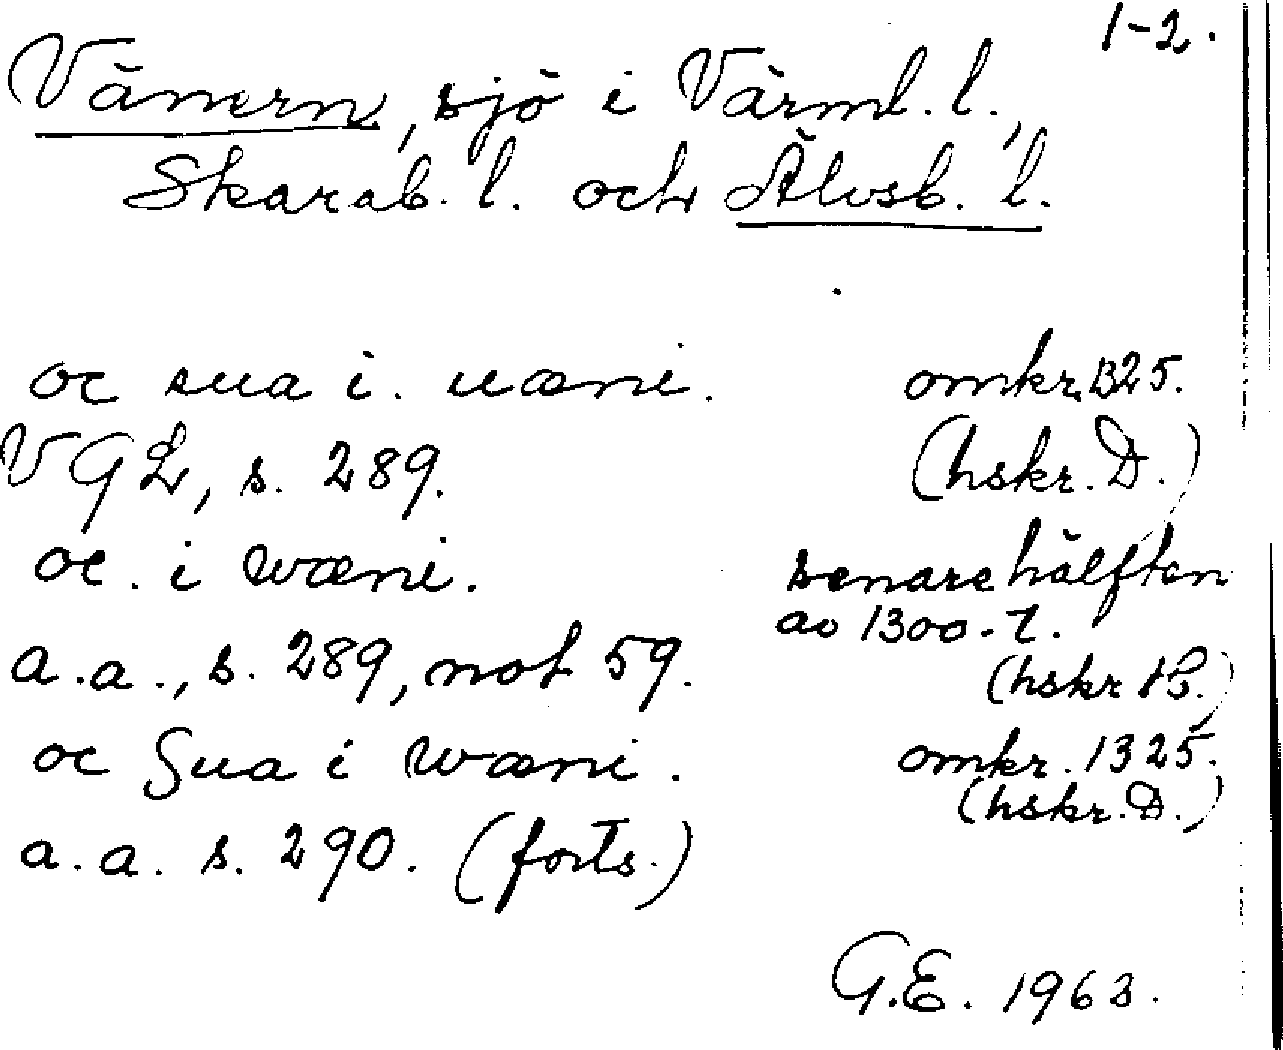 1-2.
Vänern, sjö i Värml. l.,
Skarab. l. och Älvsb. l.
oc sua i. uæni. omkr. 1325.
VGL, s. 289. (hskr. D.)
oc. i wæni. senare hälften
av 1300-t.
a.a., s. 289, not 59. (hskr B.)
oc Sua i wæni. omkr. 1325.
(hskr. D.)
a.a. s. 290. (forts.)
G.E. 1963.